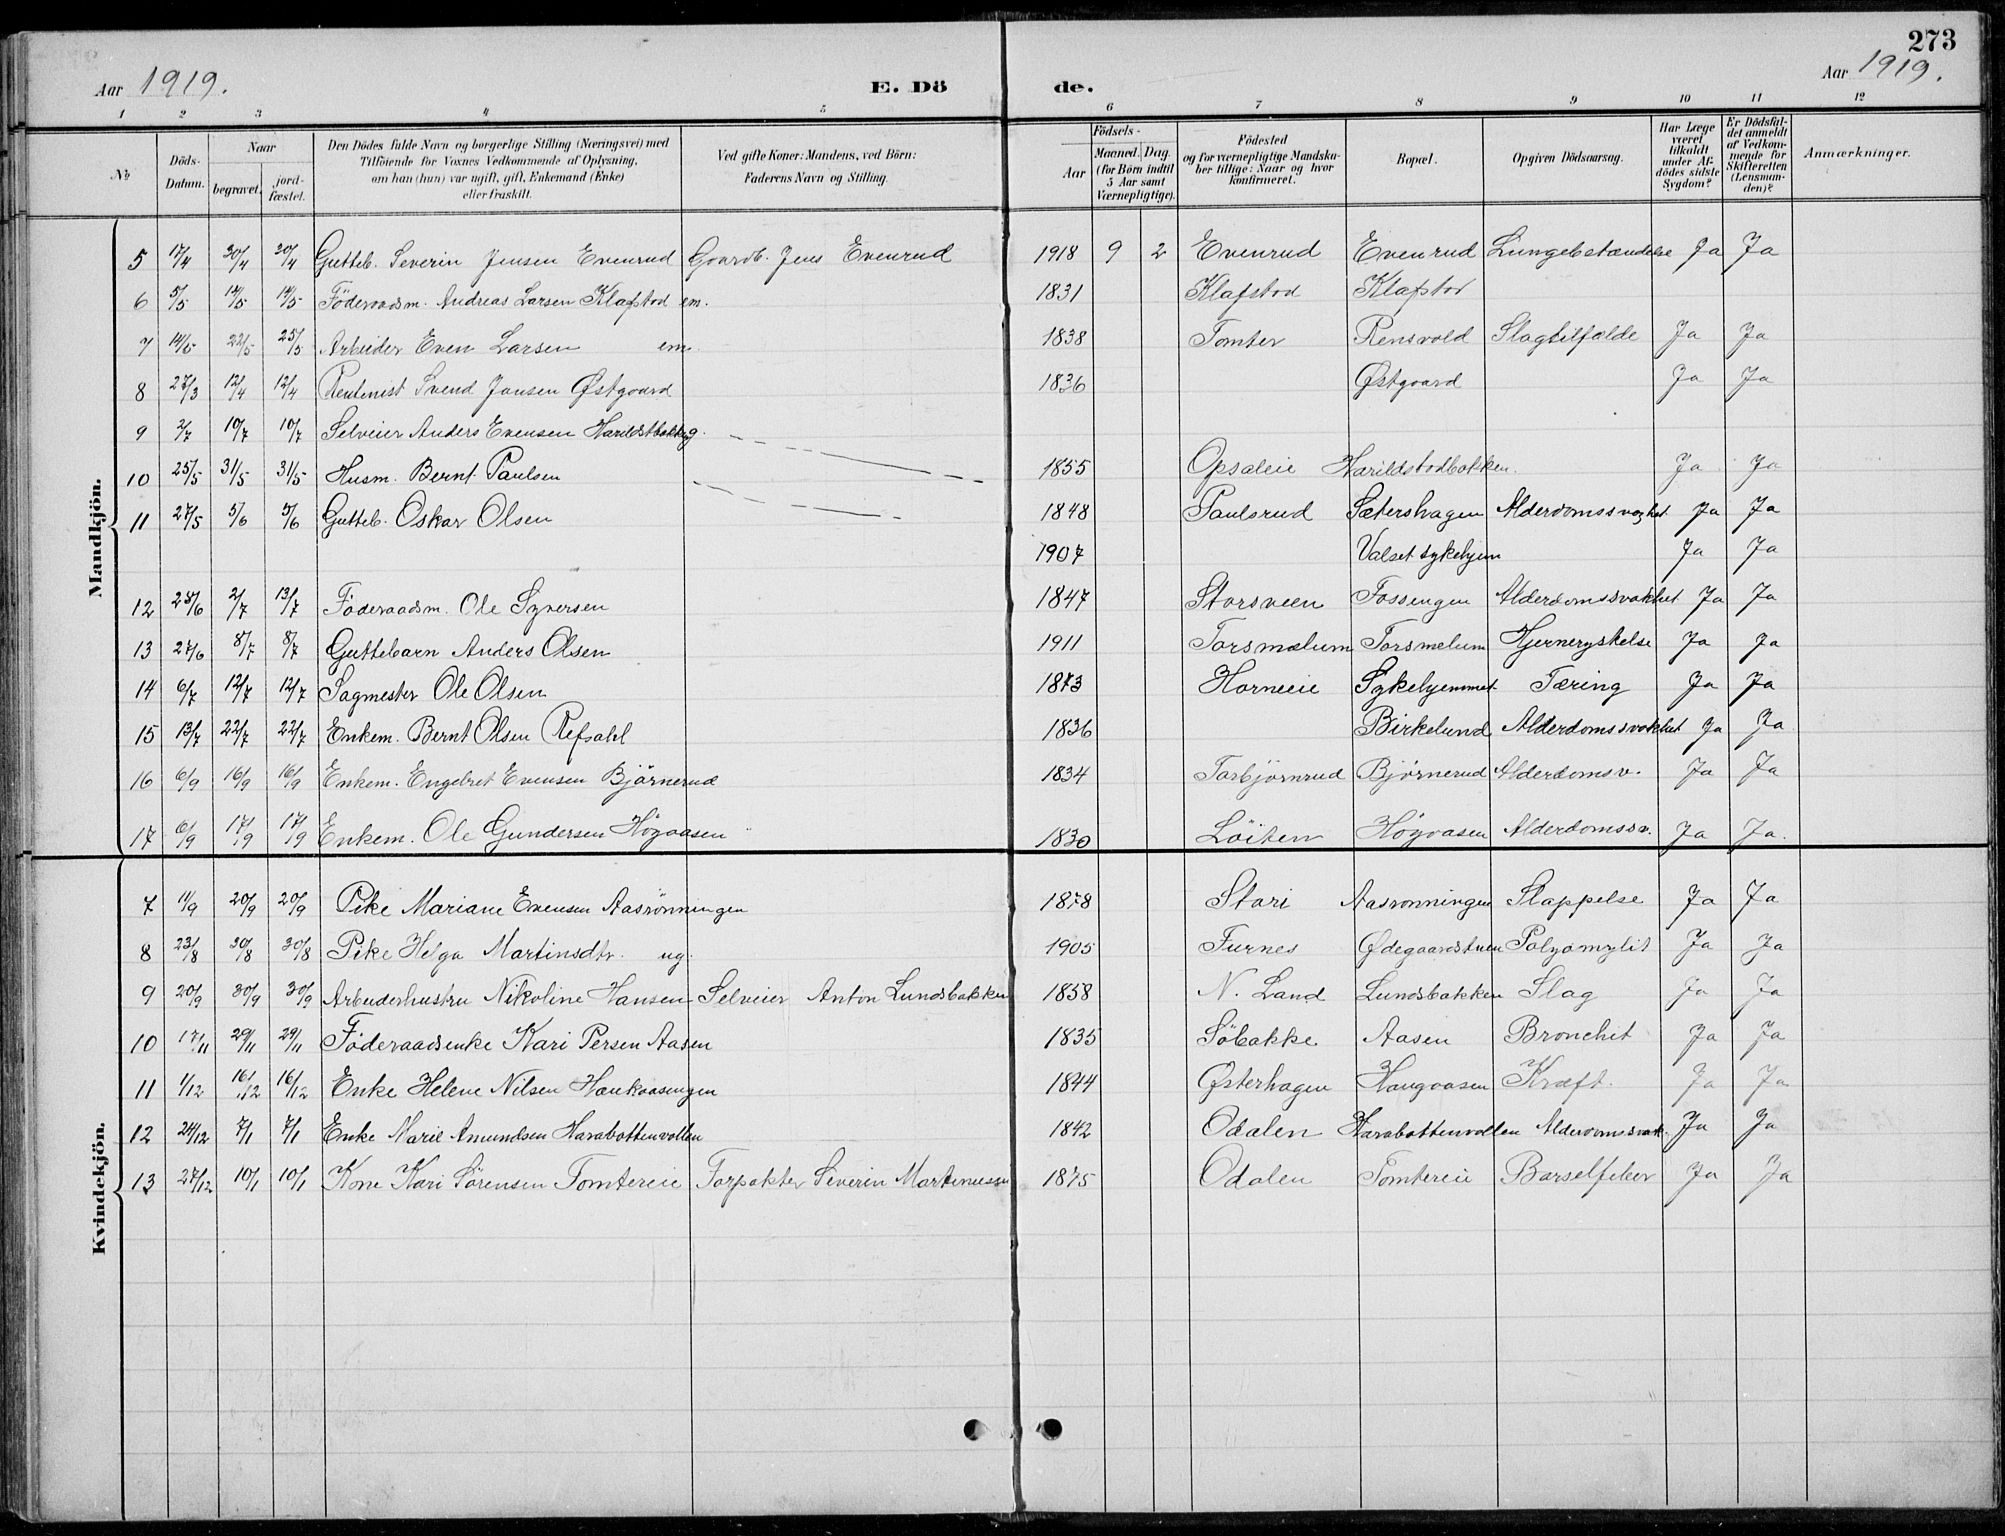 273
Aar 1919.
E. Döde.
Aar 1919.
1 2 3 4 5 6 7 8 9 10 11 12
№
Döds-Datum.
Naar
begravet.
jordfæstet.
Den Dödes fulde Navn og borgerlige Stilling (Næringsvei) med Tilföiende for Voxnes Vedkommende af Oplysning, om han (hun) var ugift, gift, Enkemand (Enke) eller fraskilt.
Ved gifte Koner: Mandens, ved Börn: Faderens Navn og Stilling.
Födsels-
Aar
Maaned. Dag.
(for Börn indtil 5 Aar samt Værnepligtige).
Födested og for værnepligtige Mandskaber tillige: Naar og hvor konfirmeret.
Bopæl.
Opgiven Dödsaarsag.
Har Læge været tilkaldt under Afdödes sidste Sygdom?
Er Dödsfaldet anmeldt af Vedkommende for Skifteretten (Lensmanden)?
Anmærkninger.
Mandkjön.
5 17/4 30/4 20/4 Gutteb. Severin Jensen Evenrud Gaardb. Jens Evenrud 1918 9 2 Evenrud Evenrud Lungebetændelse Ja Ja
6 5/5 14/5 14/5 Föderaadsm. Andreas Larsen Klafstad em. 1831 Klafstad Klafstad
7 14/5 22/5 25/5 Arbeider Even Larsen em. 1838 Tomter Rensvold Slagtilfælde Ja Ja
8 27/3 12/4 12/4 Rentenist Svend Jansen Østgaard 1836 Østgaard Ja Ja
9 2/7 10/7 10/7 Selveier Anders Evensen
10 25/5 31/5 31/5 Husm. Bernt Paulsen 1855 Opsaleie Harildstadbakken. Ja Ja
11 27/5 5/6 5/6 Gutteb. Oskar Olsen 1848 Paulsrud Sætershagen Alderdomssvaghet Ja Ja
1907 Valset sykehjem Ja Ja
12 2/7 13/7 Föderaadsm. Ole Syversen 1847 Storsveen Fossengen Alderdomssvakhet Ja Ja
13 27/6 8/7 8/7 Guttebarn Anders Olsen 1911 Torsmælum Torsmelum Hjernerystelse Ja Ja
14 6/7 12/7 12/7 Sagmester Ole Olsen 1873 Horneeie Sykehjemmet Tæring Ja Ja
15 13/7 22/7 22/7 Enkem. Bernt Olsen Refsahl 1836 Birkelund Alderdomssvakhet Ja Ja
16 6/9 16/9 16/9 Enkem. Engebret Evensen Björnerud 1834 Torbjörnrud Bjørnerud Alderdomsv. Ja Ja
17 6/9 17/9 17/9 Enkem. Ole Gundersen Högaasen 1830 Löiten Högaasen Alderdomssv. Ja Ja.
Kvindekjön.
7 11/9 20/9 20/9 Pike Mariane Evensen Aasrönningen 1878 Stari Aasronningen Slappelse Ja Ja
8 23/8 30/8 30/8 Pike Helga Martinsdtr. ug. 1905 Furnes Ødegaardstuen Polyomylit Ja Ja
9 20/9 30/9 30/9 Arbeiderhustru Nikoline Hansen Selveier Anton Lundsbakken 1858 N. Land Lundsbakken Slag Ja Ja
10 17/11 29/11 29/11 Föderaadsenke Kari Persen Aasen 1835 Söbakke Aasen Bronchit Ja Ja
11 1/12 16/12 16/12 Enke Helene Nilsen Haukaasengen 1844 Østerhagen Haugaasen Kræft. Ja Ja
12 24/12 7/1 7/1 Enke Marie Amundsen Harabottenvollen 1842 Odalen Harabottenvollen Alderdomssvak. Ja Ja
13 27/12 10/1 10/1 Kone Kari Sörensen Tomtereie Forpakter Severin Martinussen 1875 Odalen Tomtereie Barselfeber Ja Ja